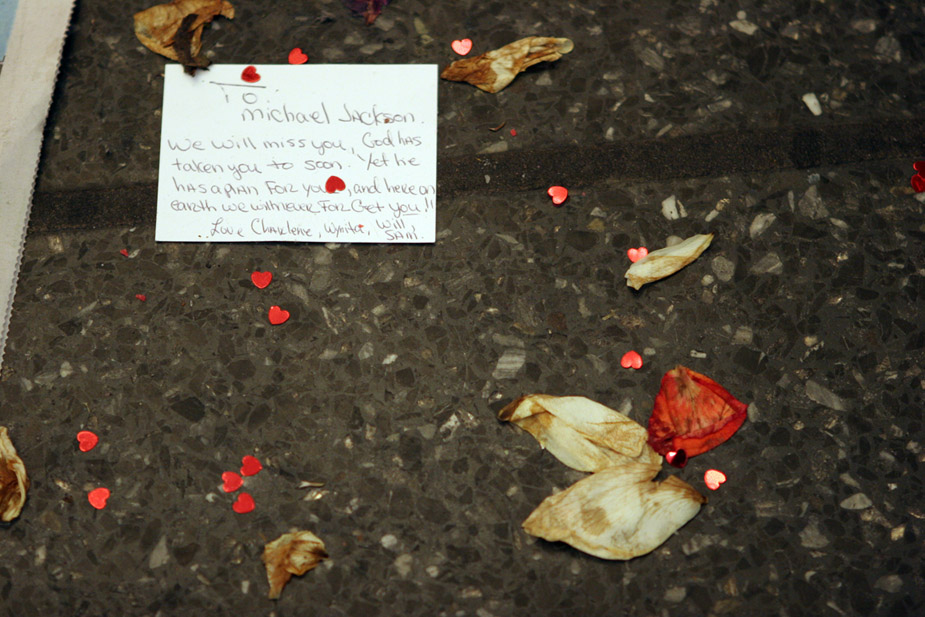 To:
Michael Jackson.
We will miss you, God has
taken you to soon. Yet he
has a plan For you, and here on
earth we will never ForGet you!!
..Love Charlene, Will
Sam.